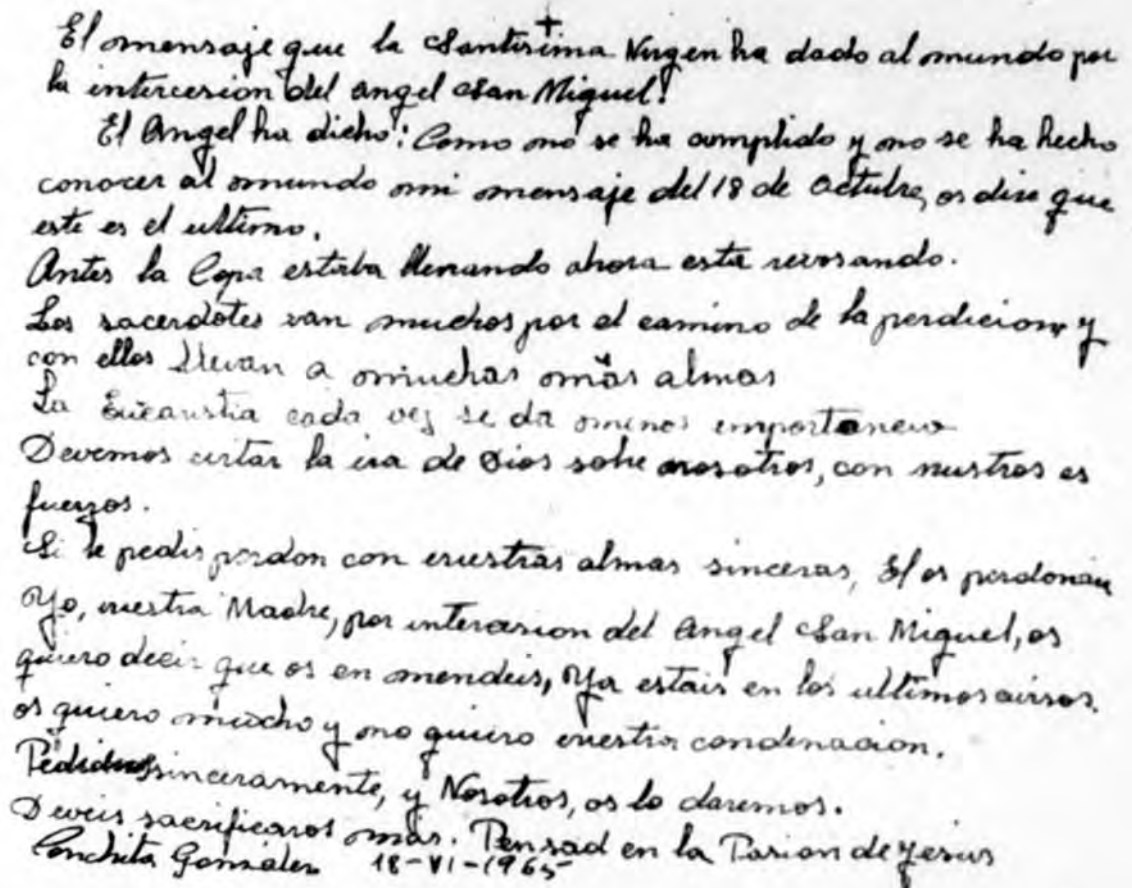 +
El mensaje que la Santisima Virgen ha dado al mundo por
la intercesion del angel San Miguel!
El Angel ha dicho: Como no se ha cumplido y no se ha hecho
conocer al mundo mi mensaje del 18 de Octubre, os dire que
este es el ultimo.
Antes la Copa estaba llenando ahora esta revosando.
Los sacerdotes van muchos por el camino de la perdicion y
con ellos llevan a muchas más almas
La Eucaristia cada vez se da menos importancia
Devemos evitar la ira de Dios sobre nosotros, con nuestros es
fuerzos.
Si le pedis perdon con vuestras almas sinceras, El os perdonara
Yo, vuestra Madre, por intercesion del Angel San Miguel, os
quiero decir que os en mendeis, Ya estais en los ultimos avisos.
os quiero mucho y no quiero vuestra condenacion.
sinceramente, y Nosotros, os lo daremos.
Deveis sacrificaros mas. Pensad en la Pasion de Jesus
Conchita Gonzalez 18-VI-1965